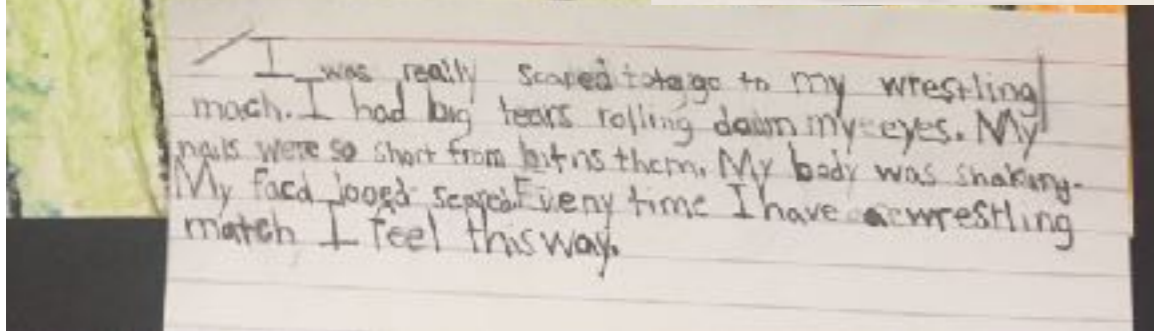 I was really scared to go to my wrestling
mach. I had big tears rolling down my eyes. My
nails were so short from bitns them. My body was shaking.
My facd looed scared. Eveny time I have a wrestling
match I feel this way.